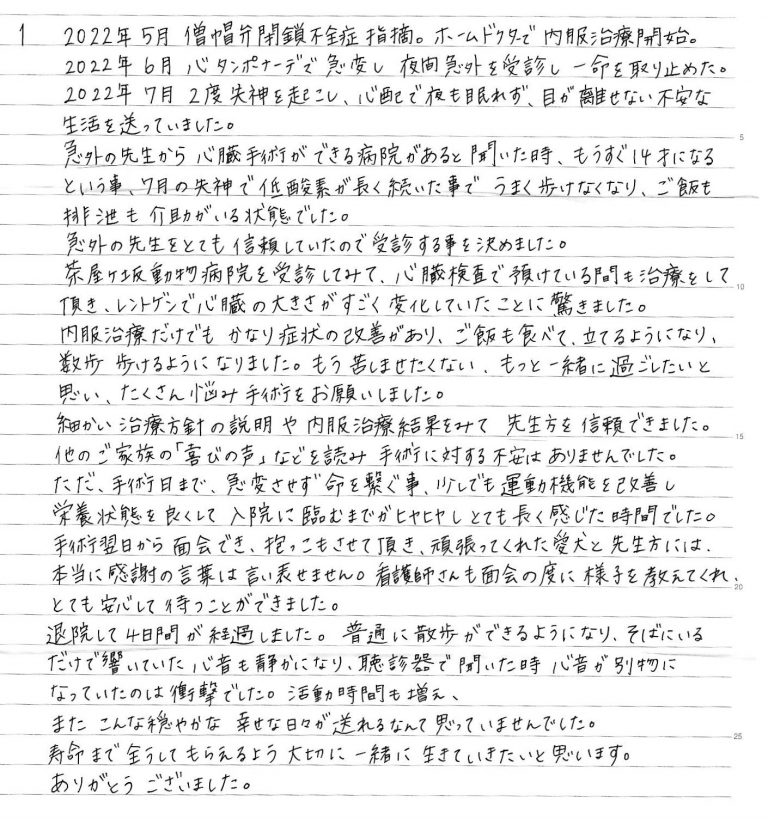 1 2022年5月 僧帽弁閉鎖不全症 指摘。ホームドクタで 内服治療開始。
2022年6月 心タンポナーデで 急変し 夜間急外を受診し 一命を取り止めた。
2022年7月 2度失神を起こし、心配で夜も眠れず、目が離せない不安な
生活を送っていました。
急外の先生から 心臓手術ができる病院があると聞いた時、もうすぐ14才になる
という事、7月の失神で低酸素が長く続いた事で うまく歩けなくなり、ご飯も
排泄も介助がいる状態でした。
急外の先生をとても信頼していたので受診する事を決めました。
茶屋ヶ坂動物病院を受診してみて、心臓検査で預けている間も治療をして
頂き、レントゲンで心臓の大きさがすごく変化していたことに驚きました。
内服治療だけでも かなり症状の改善があり、ご飯も食べて、立てるようになり、
数歩 歩けるようになりました。もう苦しませたくない、もっと一緒に過ごしたいと
思い、たくさん悩み手術をお願いしました。
細かい治療方針の説明や内服治療結果をみて 先生方を信頼できました。
他のご家族の「喜びの声」などを読み 手術に対する不安はありませんでした。
ただ、手術日まで、急変させず命を繋ぐ事、少しでも運動機能を改善し
栄養状態を良くして 入院に臨むまでがヒヤヒヤしとても長く感じた時間でした。
手術翌日から面会でき、抱っこもさせて頂き、頑張ってくれた愛犬と先生方には、
本当に感謝の言葉は言い表せません。看護師さんも面会の度に様子を教えてくれ、
とても安心して待つことができました。
退院して4日間が経過しました。普通に散歩ができるようになり、そばにいる
だけで響いていた心音も静かになり、聴診器で聞いた時 心音が別物に
なっていたのは衝撃でした。活動時間も増え、
また こんな穏やかな 幸せな日々が送れるなんて思っていませんでした。
寿命まで全うしてもらえるよう 大切に 一緒に 生きていきたいと思います。
ありがとう ございました。